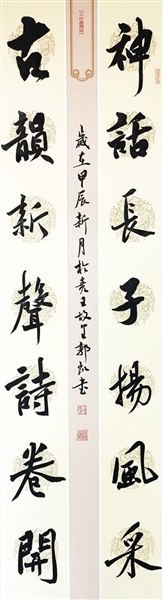 神話長子揚風采
古韻新聲詩卷開
歲在甲辰新月於炎王故里郭凱書